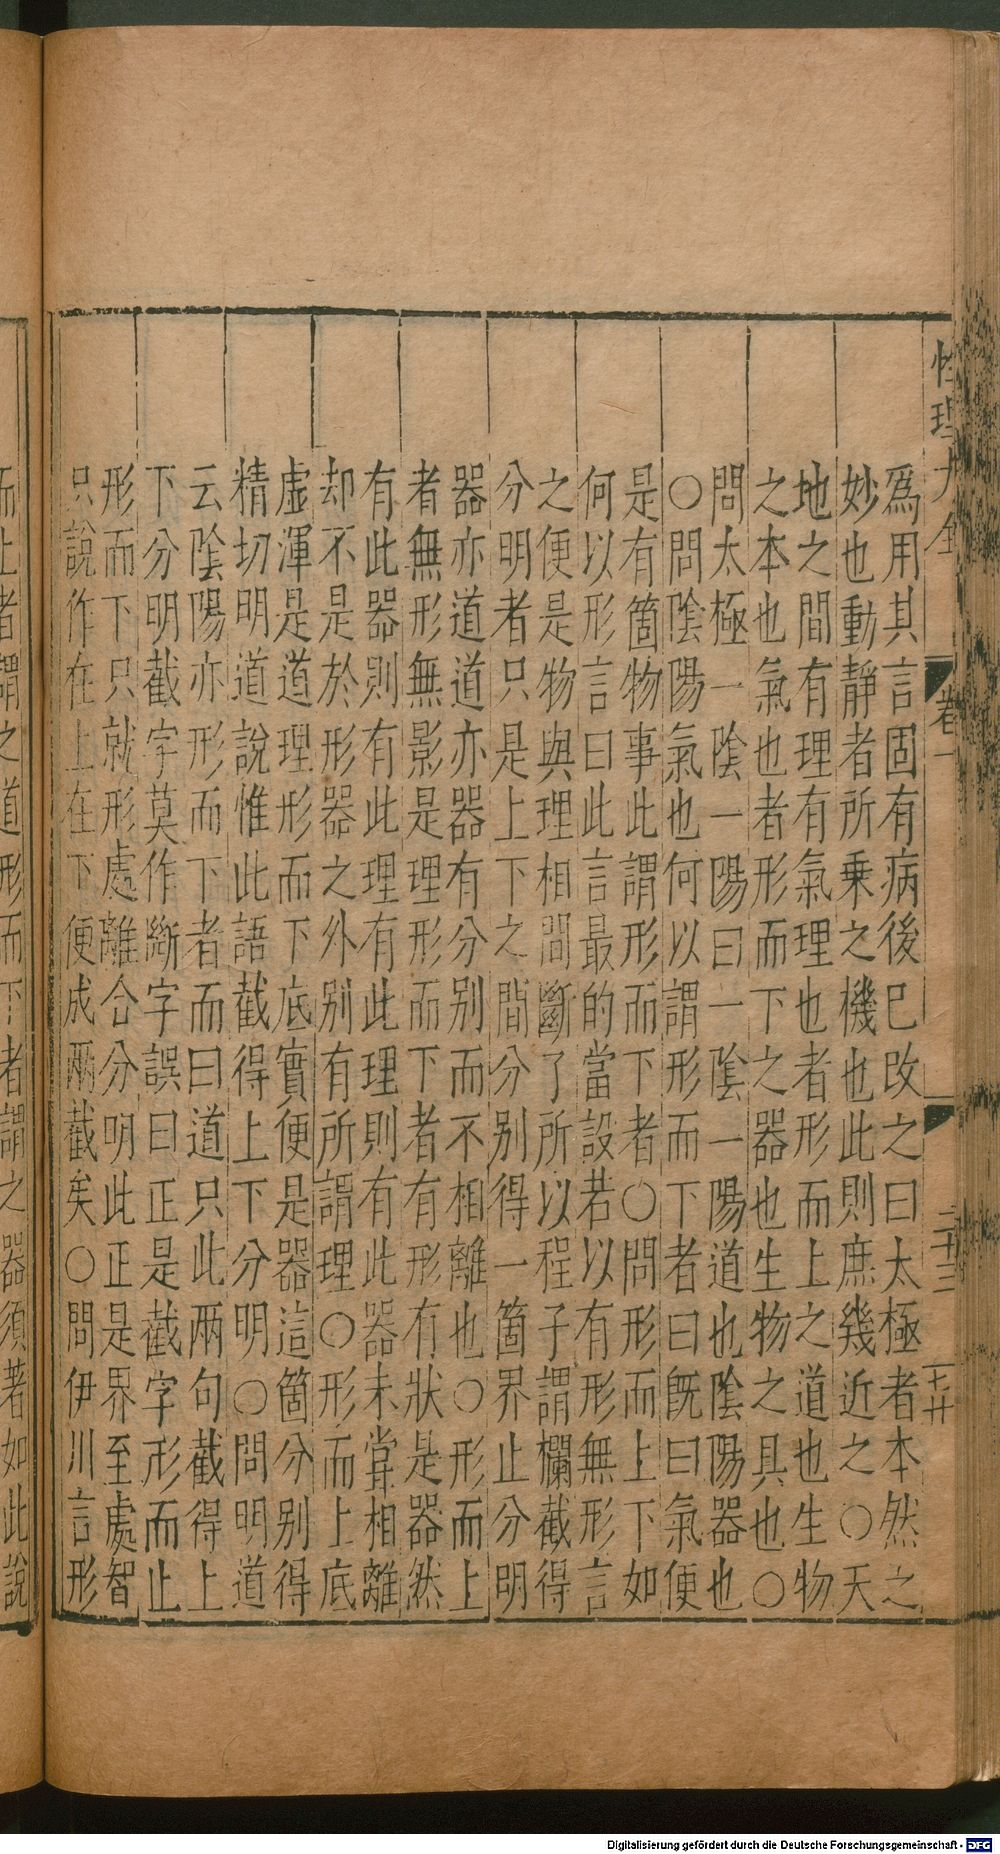 性理大全
卷一
二十三
爲用其言固有病後已改之曰太極者本然之
妙也動靜者所乗之機也此則庶幾近之○天
地之間有理有氣理也者形而上之道也生物
之本也氣也者形而下之器也生物之具也○
問太極一陰一陽曰一陰一陽道也陰陽器也
○問陰陽氣也何以謂形而下者曰旣曰氣便
是有箇物事此謂形而下者○問形而上下如
何以形言曰此言最的當設若以有形無形言
之便是物與理相間斷了所以程子謂欄截得
分明者只是上下之間分别得一箇界止分明
器亦道道亦器有分别而不相離也○形而上
者無形無影是理形而下者有形有狀是器然
有此器則有此理有此理則有此器未甞相離
却不是於形器之外别有所謂理○形而上底
虛渾是道理形而下底實便是器這箇分别得
精切明道說惟此語截得上下分明○問明道
云陰陽亦形而下者而曰道只此兩句截得上
下分明截字莫作斷字誤曰正是截字形而上
形而下只就形處離合分明此正是界至處智
只說作在上在下便成兩截矣○問伊川言形
而上者謂之道形而下者謂之器須著如此說
Digitalisierung gefördert durch die Deutsche Forschungsgemeinschaft - DFG